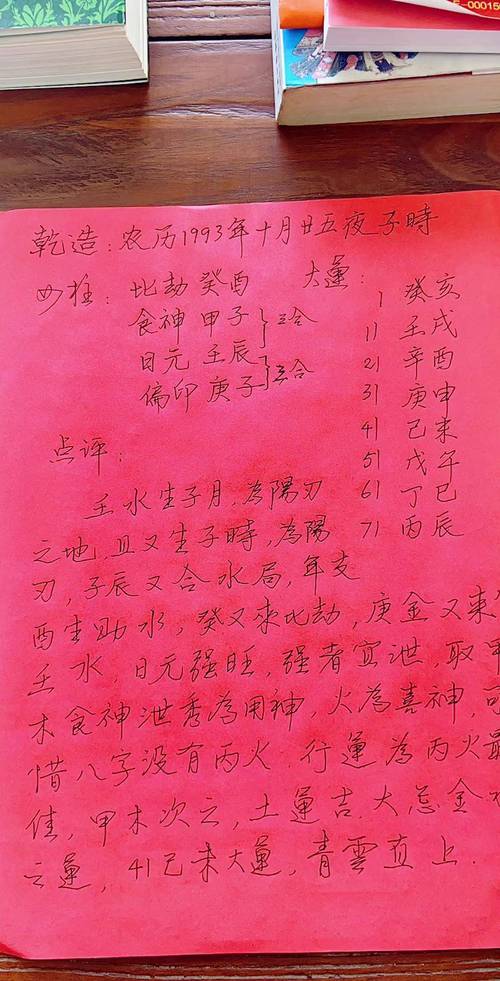 E-00015
乾造：农历1993年十月廿五夜子時
比劫 癸酉
食神 甲子 三合
日元 壬辰
偏印 庚子 三合
大運：
1 癸亥
11 壬戌
21 辛酉
31 庚申
41 己未
51 戊午
61 丁巳
71 丙辰
点评：
壬水生子月，為陽刃
之地，且又生子時，為陽
刃，子辰又合水局，年支
酉生助水，癸又來比劫，庚金又来
壬水，日元强旺，强者宜泄，取
木食神泄秀為用神，火為喜神，
惜八字没有丙火．行運為丙火最
佳，甲木次之，土運吉．大忌金
之運，41己未大運，青雲直上．